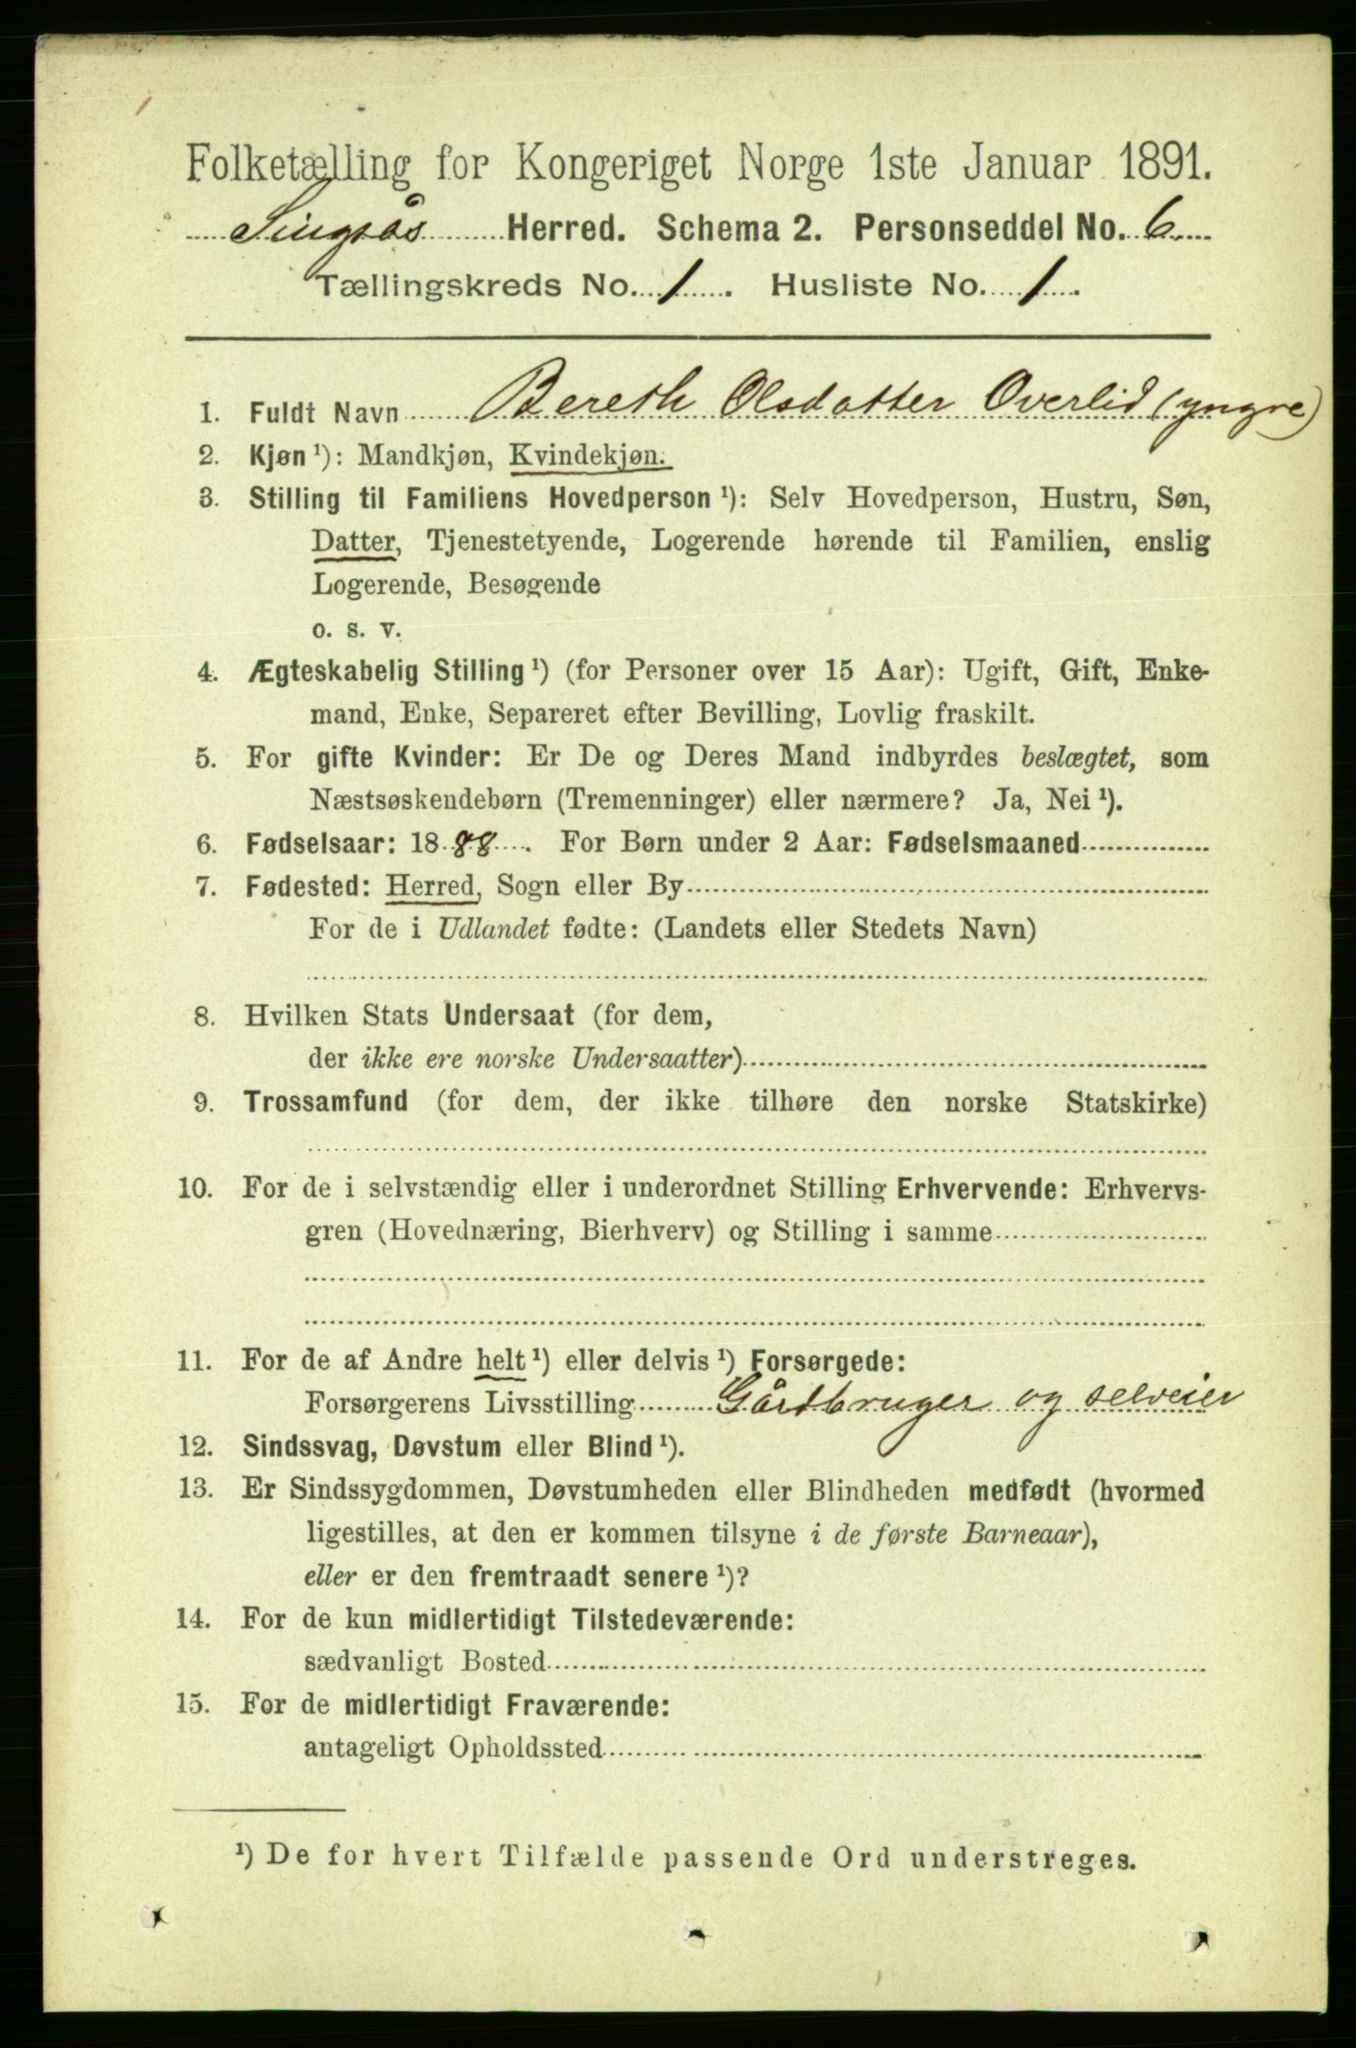 Folketælling for Kongeriget Norge 1ste Januar 1891.
Singsås Herred. Schema 2. Personseddel No. 6
Tællingskreds No. 1. Husliste No. 1.
1. Fuldt Navn Bereth Olsdatter Overlid (yngre)
2. Kjøn ¹): Mandkjøn, Kvindekjøn.
3. Stilling til Familiens Hovedperson ¹): Selv Hovedperson, Hustru, Søn,
Datter, Tjenestetyende, Logerende hørende til Familien, enslig
Logerende, Besøgende
o. s. v.
4. Ægteskabelig Stilling ¹) (for Personer over 15 Aar): Ugift, Gift, Enke-
mand, Enke, Separeret efter Bevilling, Lovlig fraskilt.
5. For gifte Kvinder: Er De og Deres Mand indbyrdes beslægtet, som
Næstsøskendebørn (Tremenninger) eller nærmere? Ja, Nei ¹).
6. Fødselsaar: 1888. For Børn under 2 Aar: Fødselsmaaned
7. Fødested: Herred, Sogn eller By
For de i Udlandet fødte: (Landets eller Stedets Navn)
8. Hvilken Stats Undersaat (for dem,
der ikke ere norske Undersaatter)
9. Trossamfund (for dem, der ikke tilhøre den norske Statskirke)
10. For de i selvstændig eller i underordnet Stilling Erhvervende: Erhvervs-
gren (Hovednæring, Bierhverv) og Stilling i samme
11. For de af Andre helt ¹) eller delvis ¹) Forsørgede:
Forsørgerens Livsstilling Gårdbruger og selveier
12. Sindssvag, Døvstum eller Blind ¹).
13. Er Sindssygdommen, Døvstumheden eller Blindheden medfødt (hvormed
ligestilles, at den er kommen tilsyne i de første Barneaar),
eller er den fremtraadt senere ¹)?
14. For de kun midlertidigt Tilstedeværende:
sædvanligt Bosted
15. For de midlertidigt Fraværende:
antageligt Opholdssted
¹) De for hvert Tilfælde passende Ord understreges.